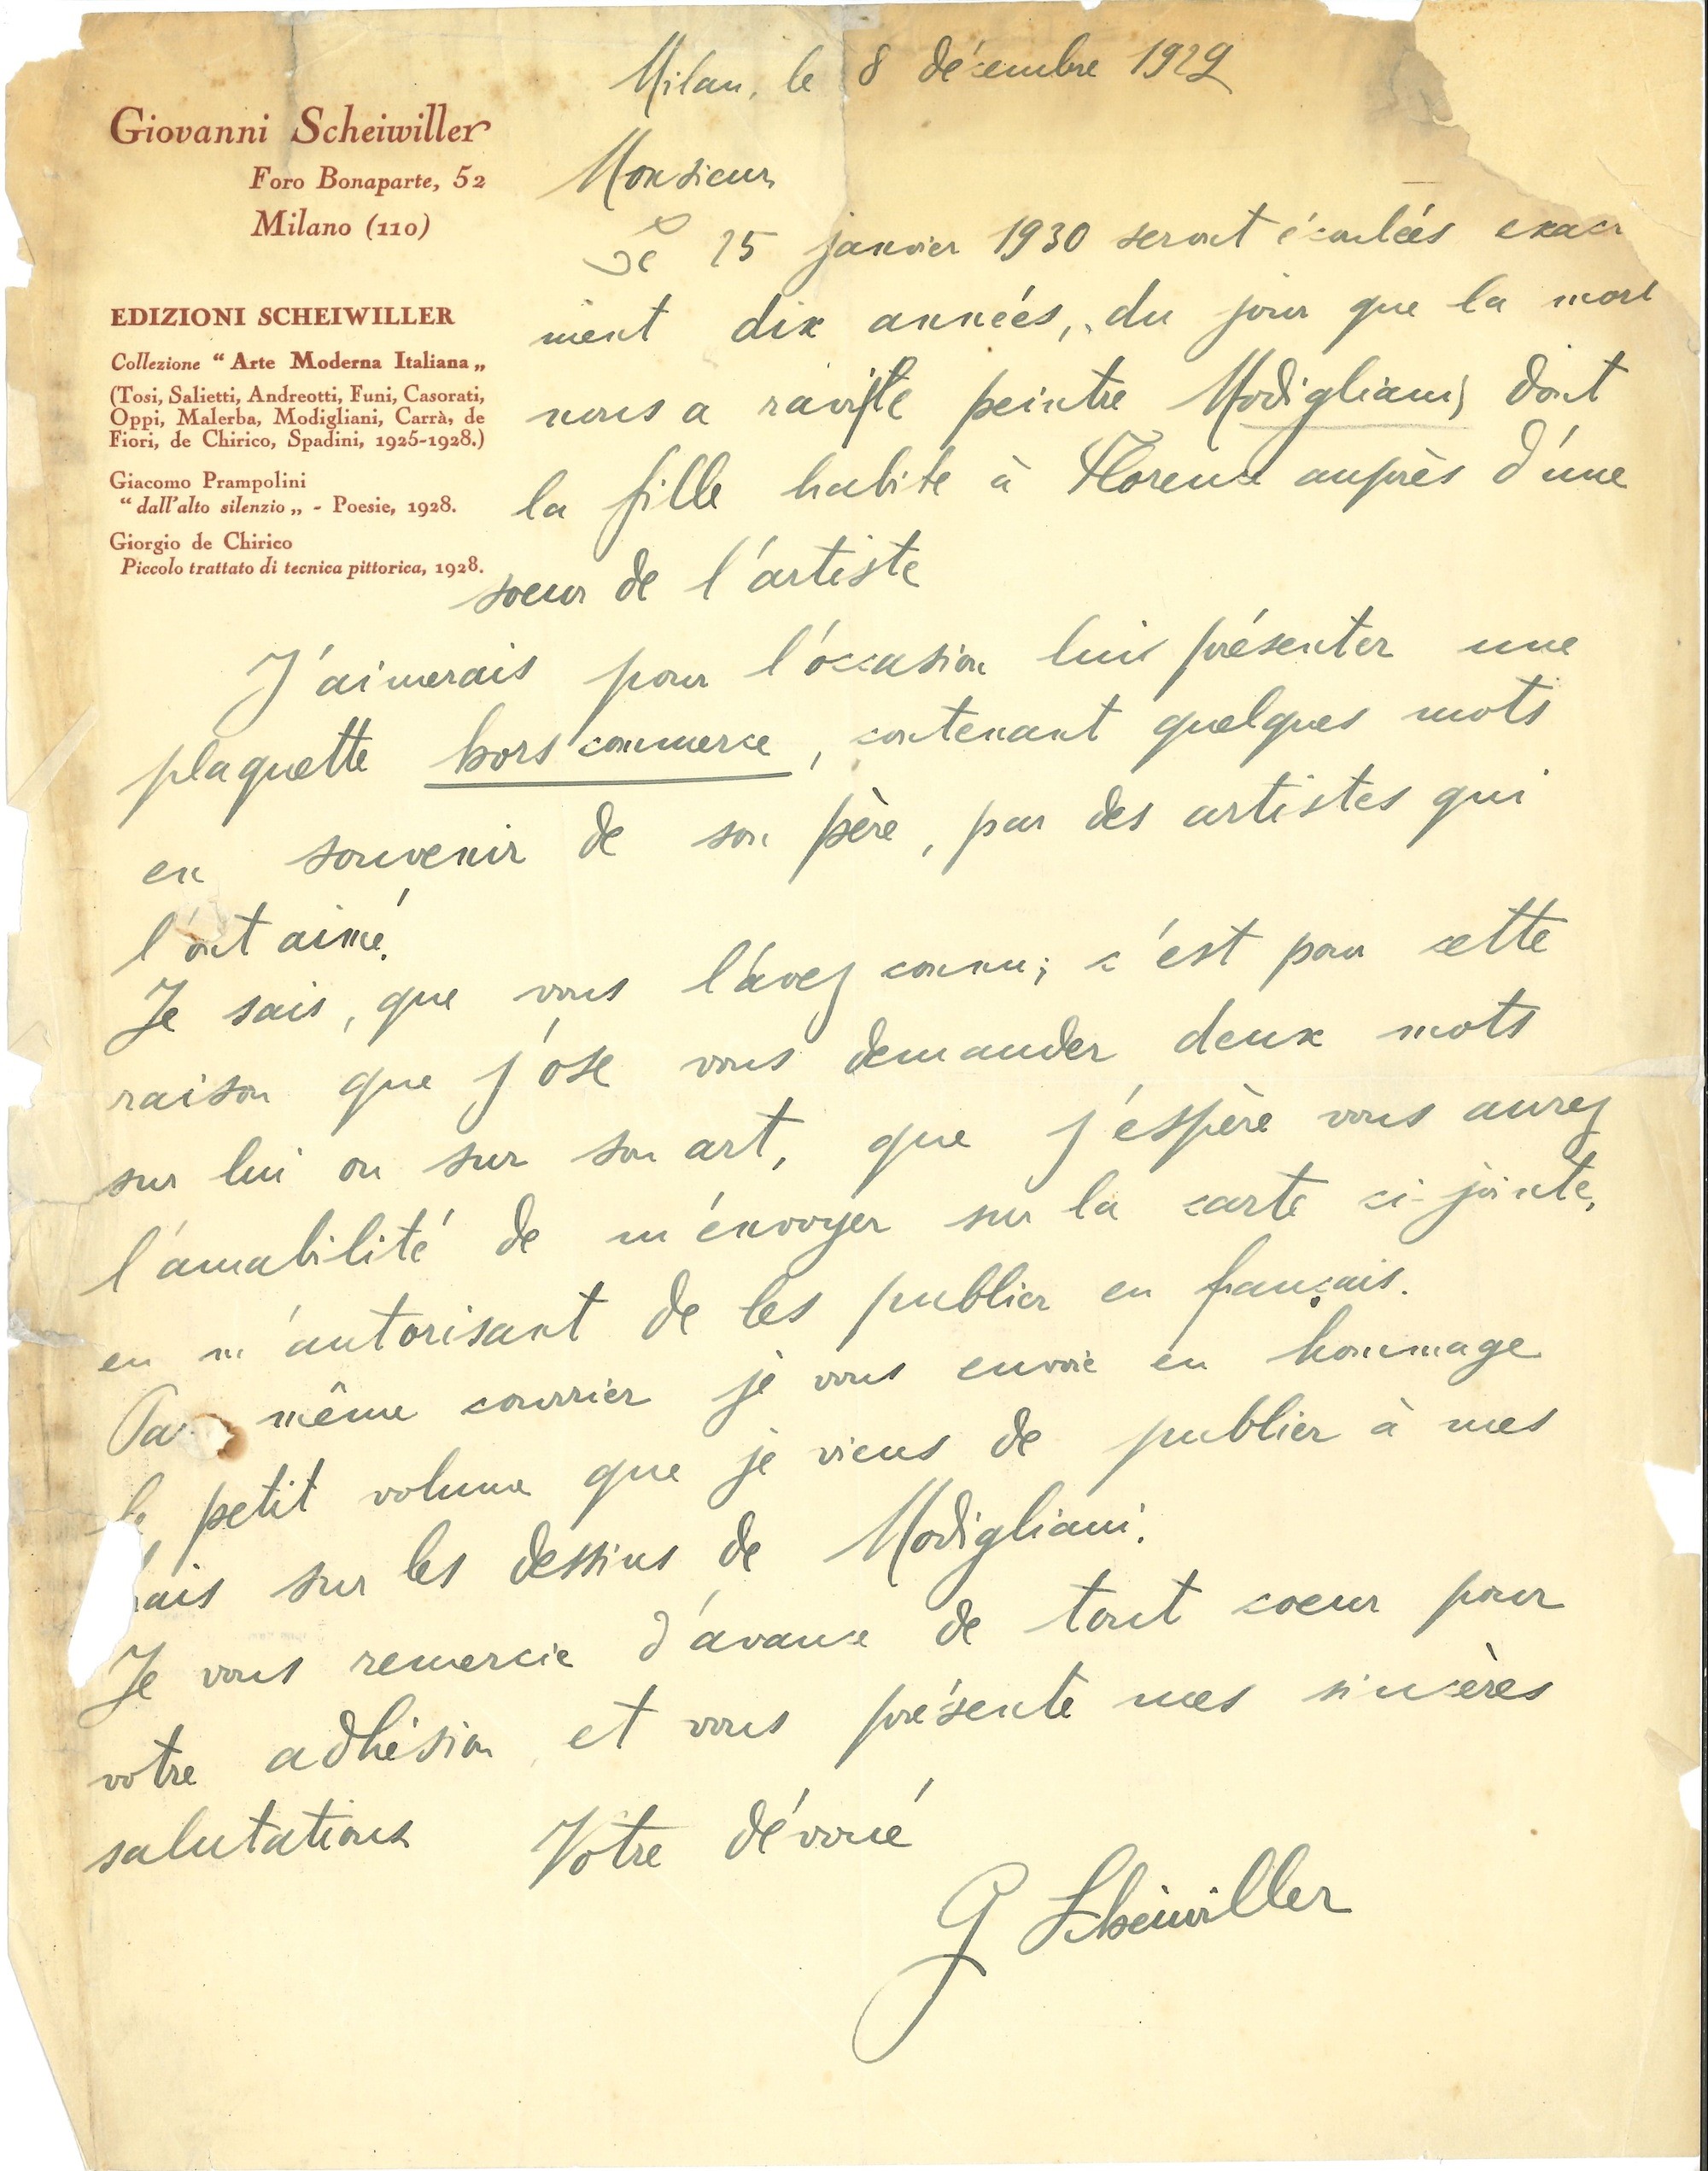 Milan, le 8 décembre 1929
Giovanni Scheiwiller
Foro Bonaparte, 52
Milano (110)
EDIZIONI SCHEIWILLER
Collezione “ Arte Moderna Italiana „
(Tosi, Salietti, Andreotti, Funi, Casorati,
Oppi, Malerba, Modigliani, Carrà, de
Fiori, de Chirico, Spadini, 1925-1928.)
Giacomo Prampolini
“ dall'alto silenzio „ - Poesie, 1928.
Giorgio de Chirico
Piccolo trattato di tecnica pittorica, 1928.
Monsieur
Le 25 janvier 1930 seront écoulées exac
ment dix années, du jour que la mort
nous a ravi le peintre Modigliani, dont
la fille habite à Florence auprès d'une
soeur de l'artiste
J'aimerais pour l'occasion lui présenter une
plaquette hors commerce, contenant quelques mots
en souvenir de son père, par des artistes qui
l'ont aimé.
Je sais, que vous l'avez connu; c'est pour cette
raison que j'ose vous demander deux mots
sur lui ou sur son art, que j'espère vous aurez
l'amabilité de m'envoyer sur la carte ci-jointe,
en m'autorisant de les publier en français.
Par même courrier je vous envoie en hommage
le petit volume que je viens de publier à mes
ais sur les dessins de Modigliani.
Je vous remercie d'avance de tout coeur pour
votre adhésion et vous présente mes sincères
salutations Votre dévoué
G Scheiwiller